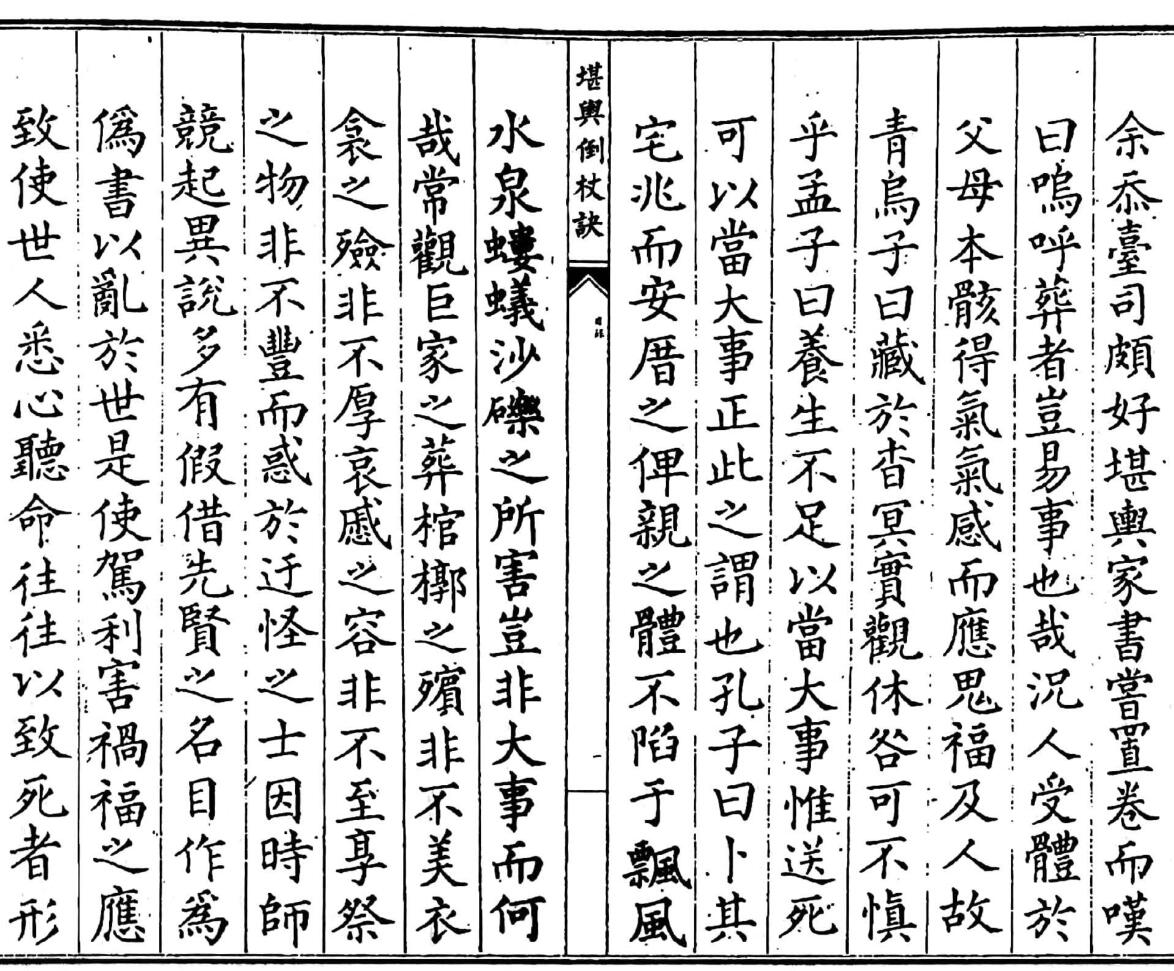 余忝臺司頗好堪輿家書嘗置卷而嘆
曰嗚呼葬者豈易事也哉況人受體於
父母本骸得氣氣感而應思福及人故
青烏子曰藏於杳冥實觀休咎可不慎
乎孟子曰養生不足以當大事惟送死
可以當大事正此之謂也孔子曰卜其
宅兆而安厝之俾親之體不陷于飄風
堪輿倒杖訣
水泉螻蟻沙礫之所害豈非大事而何
哉常觀巨家之葬棺槨之殯非不美衣
衾之殮非不厚哀慼之容非不至享祭
之物非不豐而惑於迂怪之士因時師
競起異說多有假借先賢之名目作為
偽書以亂於世是使駕利害禍福之應
致使世人悉心聽命往往以致死者形